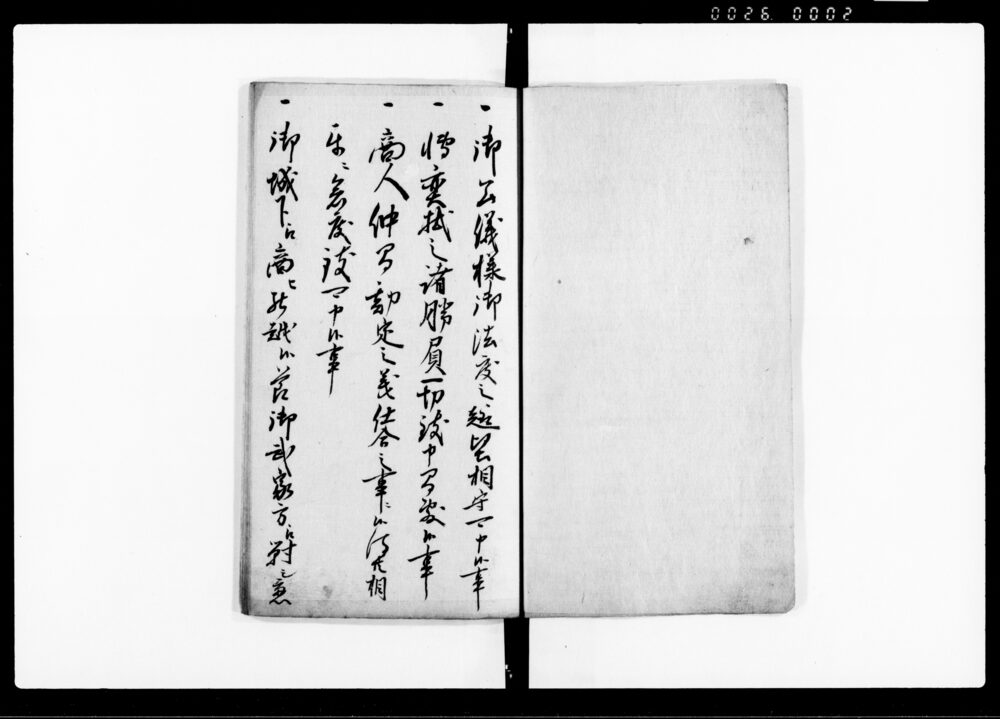 0026 0002
一 御公儀様御法度之趣堅相守可申候事
一 博奕抔之諸勝負一切致申間敷候事
一 商人仲間勘定之義仕合之事ニ候得共相
互ニ急度致可申候事
一 御城下江商ニ罷越候節御武家方江対シ慮